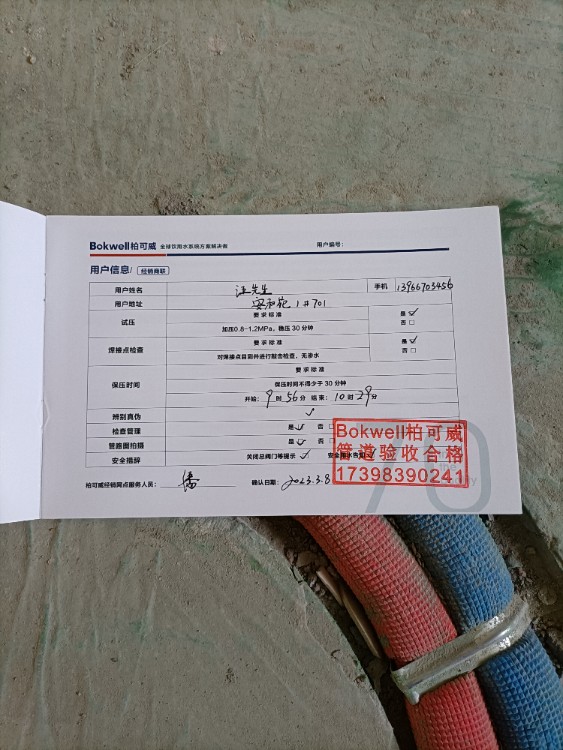 Bokwell柏可威 全球饮用水系统方案解决商 用户编号:
用户信息/ 经销商联
用户姓名 汪先生 手机 13966703456
用户地址 安和苑 1#701
试压 要求标准 是☑
加压0.8-1.2MPa，稳压 30 分钟 否□
焊接点检查 要求标准 是☑
对焊接点自到外进行敲击检查，无渗水 否□
保压时间 要求标准
保压时间不得少于 30 分钟
开始: 9 时 56 分 结束: 10 时 29 分
辨别真伪 ✓
检查管理 是☑ 否□
管路图拍摄 是☑ 否□
安全措辞 关闭总阀门等提示 ✓
柏可威经销网点服务人员: 潘 确认日期: 2023.3.8
Bokwell柏可威
管道验收合格
17398390241
70